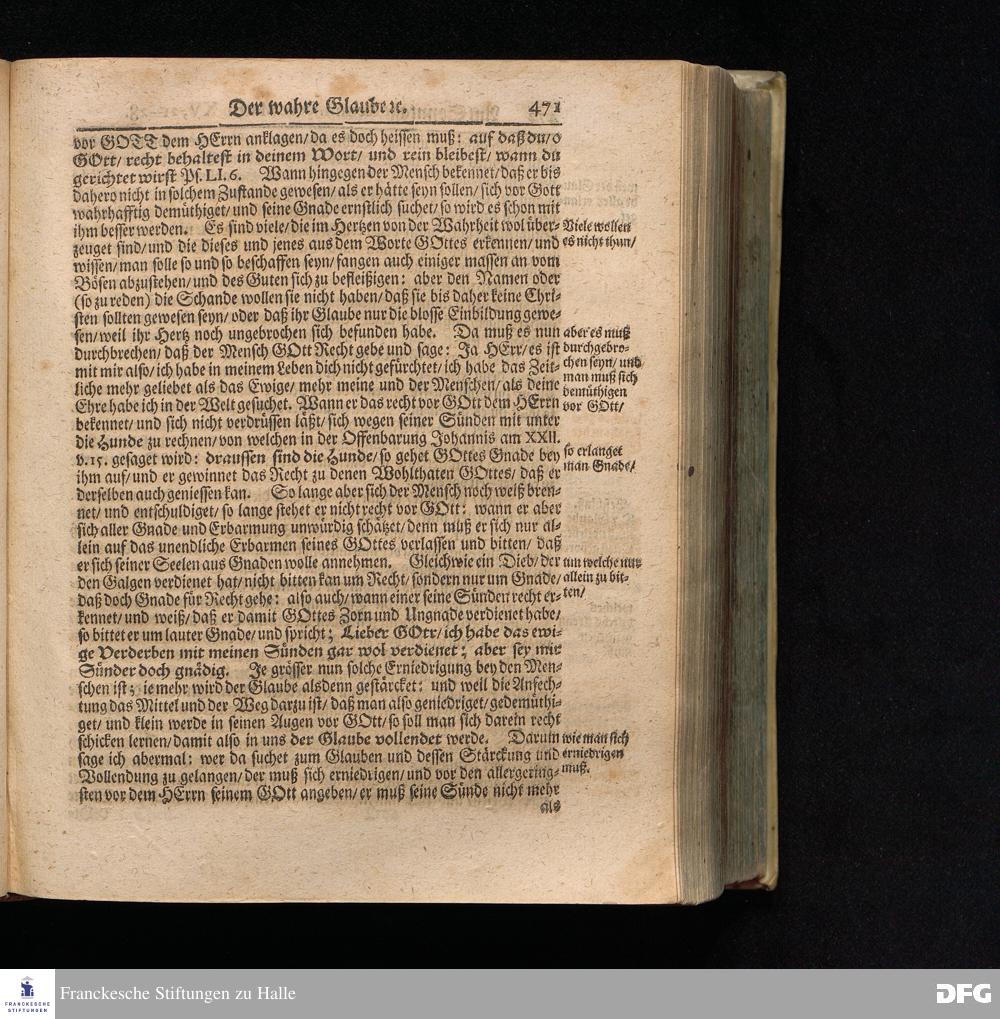 Der wahre Glaube ꝛc. 471
vor GOTT dem HErrn anklagen/ da es doch heissen muß: auf daß du/ o
GOtt/ recht behaltest in deinem Wort/ und rein bleibest/ wann du
gerichtet wirst Ps. LI. 6. Wann hingegen der Mensch bekennet/ daß er bis
dahero nicht in solchem Zustande gewesen/ als er hätte seyn sollen/ sich vor Gott
wahrhafftig demüthiget/ und seine Gnade ernstlich suchet/ so wird es schon mit
ihm besser werden. Es sind viele/ die im Hertzen von der Wahrheit wol über-
zeuget sind/ und die dieses und jenes aus dem Worte GOttes erkennen/ und
wissen/ man solle so und so beschaffen seyn/ fangen auch einiger massen an vom
Bösen abzustehen/ und des Guten sich zu befleißigen: aber den Namen oder
(so zu reden) die Schande wollen sie nicht haben/ daß sie bis daher keine Chri-
sten sollten gewesen seyn/ oder daß ihr Glaube nur die blosse Einbildung gewe-
sen/ weil ihr Hertz noch ungebrochen sich befunden habe. Da muß es nun
durchbrechen/ daß der Mensch GOtt Recht gebe und sage: Ja HErr/ es ist
mit mir also/ ich habe in meinem Leben dich nicht gefürchtet/ ich habe das Zeit-
liche mehr geliebet als das Ewige/ mehr meine und der Menschen/ als deine
Ehre habe ich in der Welt gesuchet. Wann er das recht vor GOtt dem HErrn
bekennet/ und sich nicht verdrüssen läßt/ sich wegen seiner Sünden mit unter
die Hunde zu rechnen/ von welchen in der Offenbarung Johannis am XXII.
v. 15. gesaget wird: draussen sind die Hunde/ so gehet GOttes Gnade bey
ihm auf/ und er gewinnet das Recht zu denen Wohlthaten GOttes/ daß er
derselben auch geniessen kan. So lange aber sich der Mensch noch weiß bren-
net/ und entschuldiget/ so lange stehet er nicht recht vor GOtt: wann er aber
sich aller Gnade und Erbarmung unwürdig schätzet/ denn muß er sich nur al-
lein auf das unendliche Erbarmen seines GOttes verlassen und bitten/ daß
er sich seiner Seelen aus Gnaden wolle annehmen. Gleichwie ein Dieb/ der
den Galgen verdienet hat/ nicht bitten kan um Recht/ sondern nur um Gnade/
daß doch Gnade für Recht gehe: also auch/ wann einer seine Sünden recht er-
kennet/ und weiß/ daß er damit GOttes Zorn und Ungnade verdienet habe/
so bittet er um lauter Gnade/ und spricht; Lieber GOtt/ ich habe das ewi-
ge Verderben mit meinen Sünden gar wol verdienet; aber sey mir
Sünder doch gnädig. Je grösser nun solche Erniedrigung bey den Men-
schen ist; ie mehr wird der Glaube alsdenn gestärcket: und weil die Anfech-
tung das Mittel und der Weg darzu ist/ daß man also geniedriget/ gedemüthi-
get/ und klein werde in seinen Augen vor GOtt/ so soll man sich darein recht
schicken lernen/ damit also in uns der Glaube vollendet werde. Darum
sage ich abermal: wer da suchet zum Glauben und dessen Stärckung und
Vollendung zu gelangen/ der muß sich erniedrigen/ und vor den allergering-
sten vor dem HErrn seinem GOtt angeben/ er muß seine Sünde nicht mehr
als
Viele wollen
es nicht thun/
aber es muß
durchgebro-
chen seyn/ und
man muß sich
demüthigen
vor GOtt/
so erlanget
man Gnade/
um welche nur
allein zu bit-
ten/
wie man sich
erniedrigen
muß.
FRANCKESCHE
STIFTUNGEN
Franckesche Stiftungen zu Halle
DFG